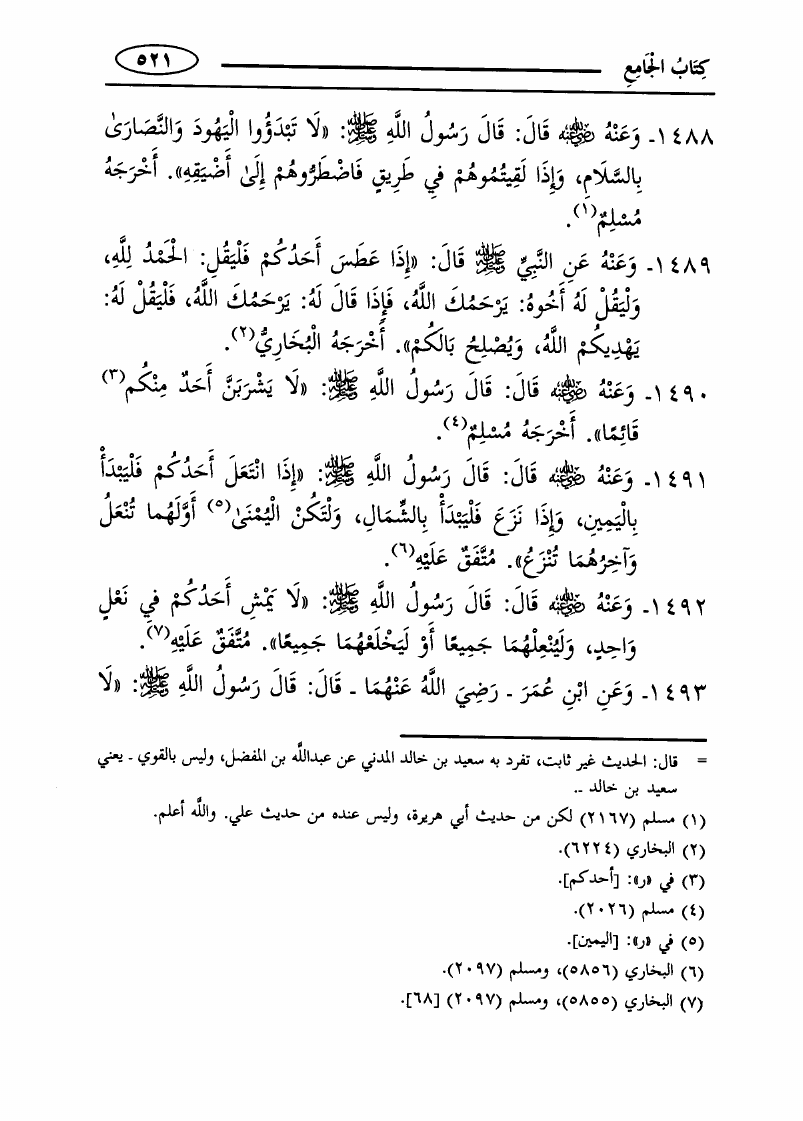 كِتَابُ الْجَامِعِ ٥٢١
١٤٨٨ـ وَعَنْهُ رضي الله عنه قَالَ: قَالَ رَسُولُ اللَّهِ ﷺ: «لَا تَبْدَؤُوا الْيَهُودَ وَالنَّصَارَىٰ
بِالسَّلَامِ، وَإِذَا لَقِيتُمُوهُمْ فِي طَرِيقٍ فَاضْطَرُّوهُمْ إِلَىٰ أَضْيَقِهِ». أَخْرَجَهُ
مُسْلِمٌ(١).
١٤٨٩ـ وَعَنْهُ عَنِ النَّبِيِّ ﷺ قَالَ: «إِذَا عَطَسَ أَحَدُكُمْ فَلْيَقُلِ: الْحَمْدُ لِلَّهِ،
وَلْيَقُلْ لَهُ أَخُوهُ: يَرْحَمُكَ اللَّهُ، فَإِذَا قَالَ لَهُ: يَرْحَمُكَ اللَّهُ، فَلْيَقُلْ لَهُ:
يَهْدِيكُمْ اللَّهُ، وَيُصْلِحُ بَالَكُمْ». أَخْرَجَهُ الْبُخَارِيُّ(٢).
١٤٩٠ـ وَعَنْهُ رضي الله عنه قَالَ: قَالَ رَسُولُ اللَّهِ ﷺ: «لَا يَشْرَبَنَّ أَحَدٌ مِنْكُم(٣)
قَائِمًا». أَخْرَجَهُ مُسْلِمٌ(٤).
١٤٩١ـ وَعَنْهُ رضي الله عنه قَالَ: قَالَ رَسُولُ اللَّهِ ﷺ: «إِذَا انْتَعَلَ أَحَدُكُمْ فَلْيَبْدَأْ
بِالْيَمِينِ، وَإِذَا نَزَعَ فَلْيَبْدَأْ بِالشِّمَالِ، وَلْتَكُنْ الْيُمْنَىٰ(٥) أَوَّلَهُما تُنْعَلُ
وَآخِرُهُمَا تُنْزَعُ». مُتَّفَقٌ عَلَيْهِ(٦).
١٤٩٢ـ وَعَنْهُ رضي الله عنه قَالَ: قَالَ رَسُولُ اللَّهِ ﷺ: «لَا يَمْشِ أَحَدُكُمْ فِي نَعْلٍ
وَاحِدٍ، وَلْيُنْعِلْهُمَا جَمِيعًا أَوْ لَيَخْلَعْهُمَا جَمِيعًا». مُتَّفَقٌ عَلَيْهِ(٧).
١٤٩٣ـ وَعَنِ ابْنِ عُمَرَ ـ رَضِيَ اللَّهُ عَنْهُمَا ـ قَالَ: قَالَ رَسُولُ اللَّهِ ﷺ: «لَا
= قال: الحديث غير ثابت، تفرد به سعيد بن خالد المدني عن عبدالله بن المفضل، وليس بالقوي ـ يعني
سعيد بن خالد ـ.
(١) مسلم (٢١٦٧) لكن من حديث أبي هريرة، وليس عنده من حديث علي. والله أعلم.
(٢) البخاري (٦٢٢٤).
(٣) في «ر»: [أحدكم].
(٤) مسلم (٢٠٢٦).
(٥) في «ر»: [اليمين].
(٦) البخاري (٥٨٥٦)، ومسلم (٢٠٩٧).
(٧) البخاري (٥٨٥٥)، ومسلم (٢٠٩٧) [٦٨].